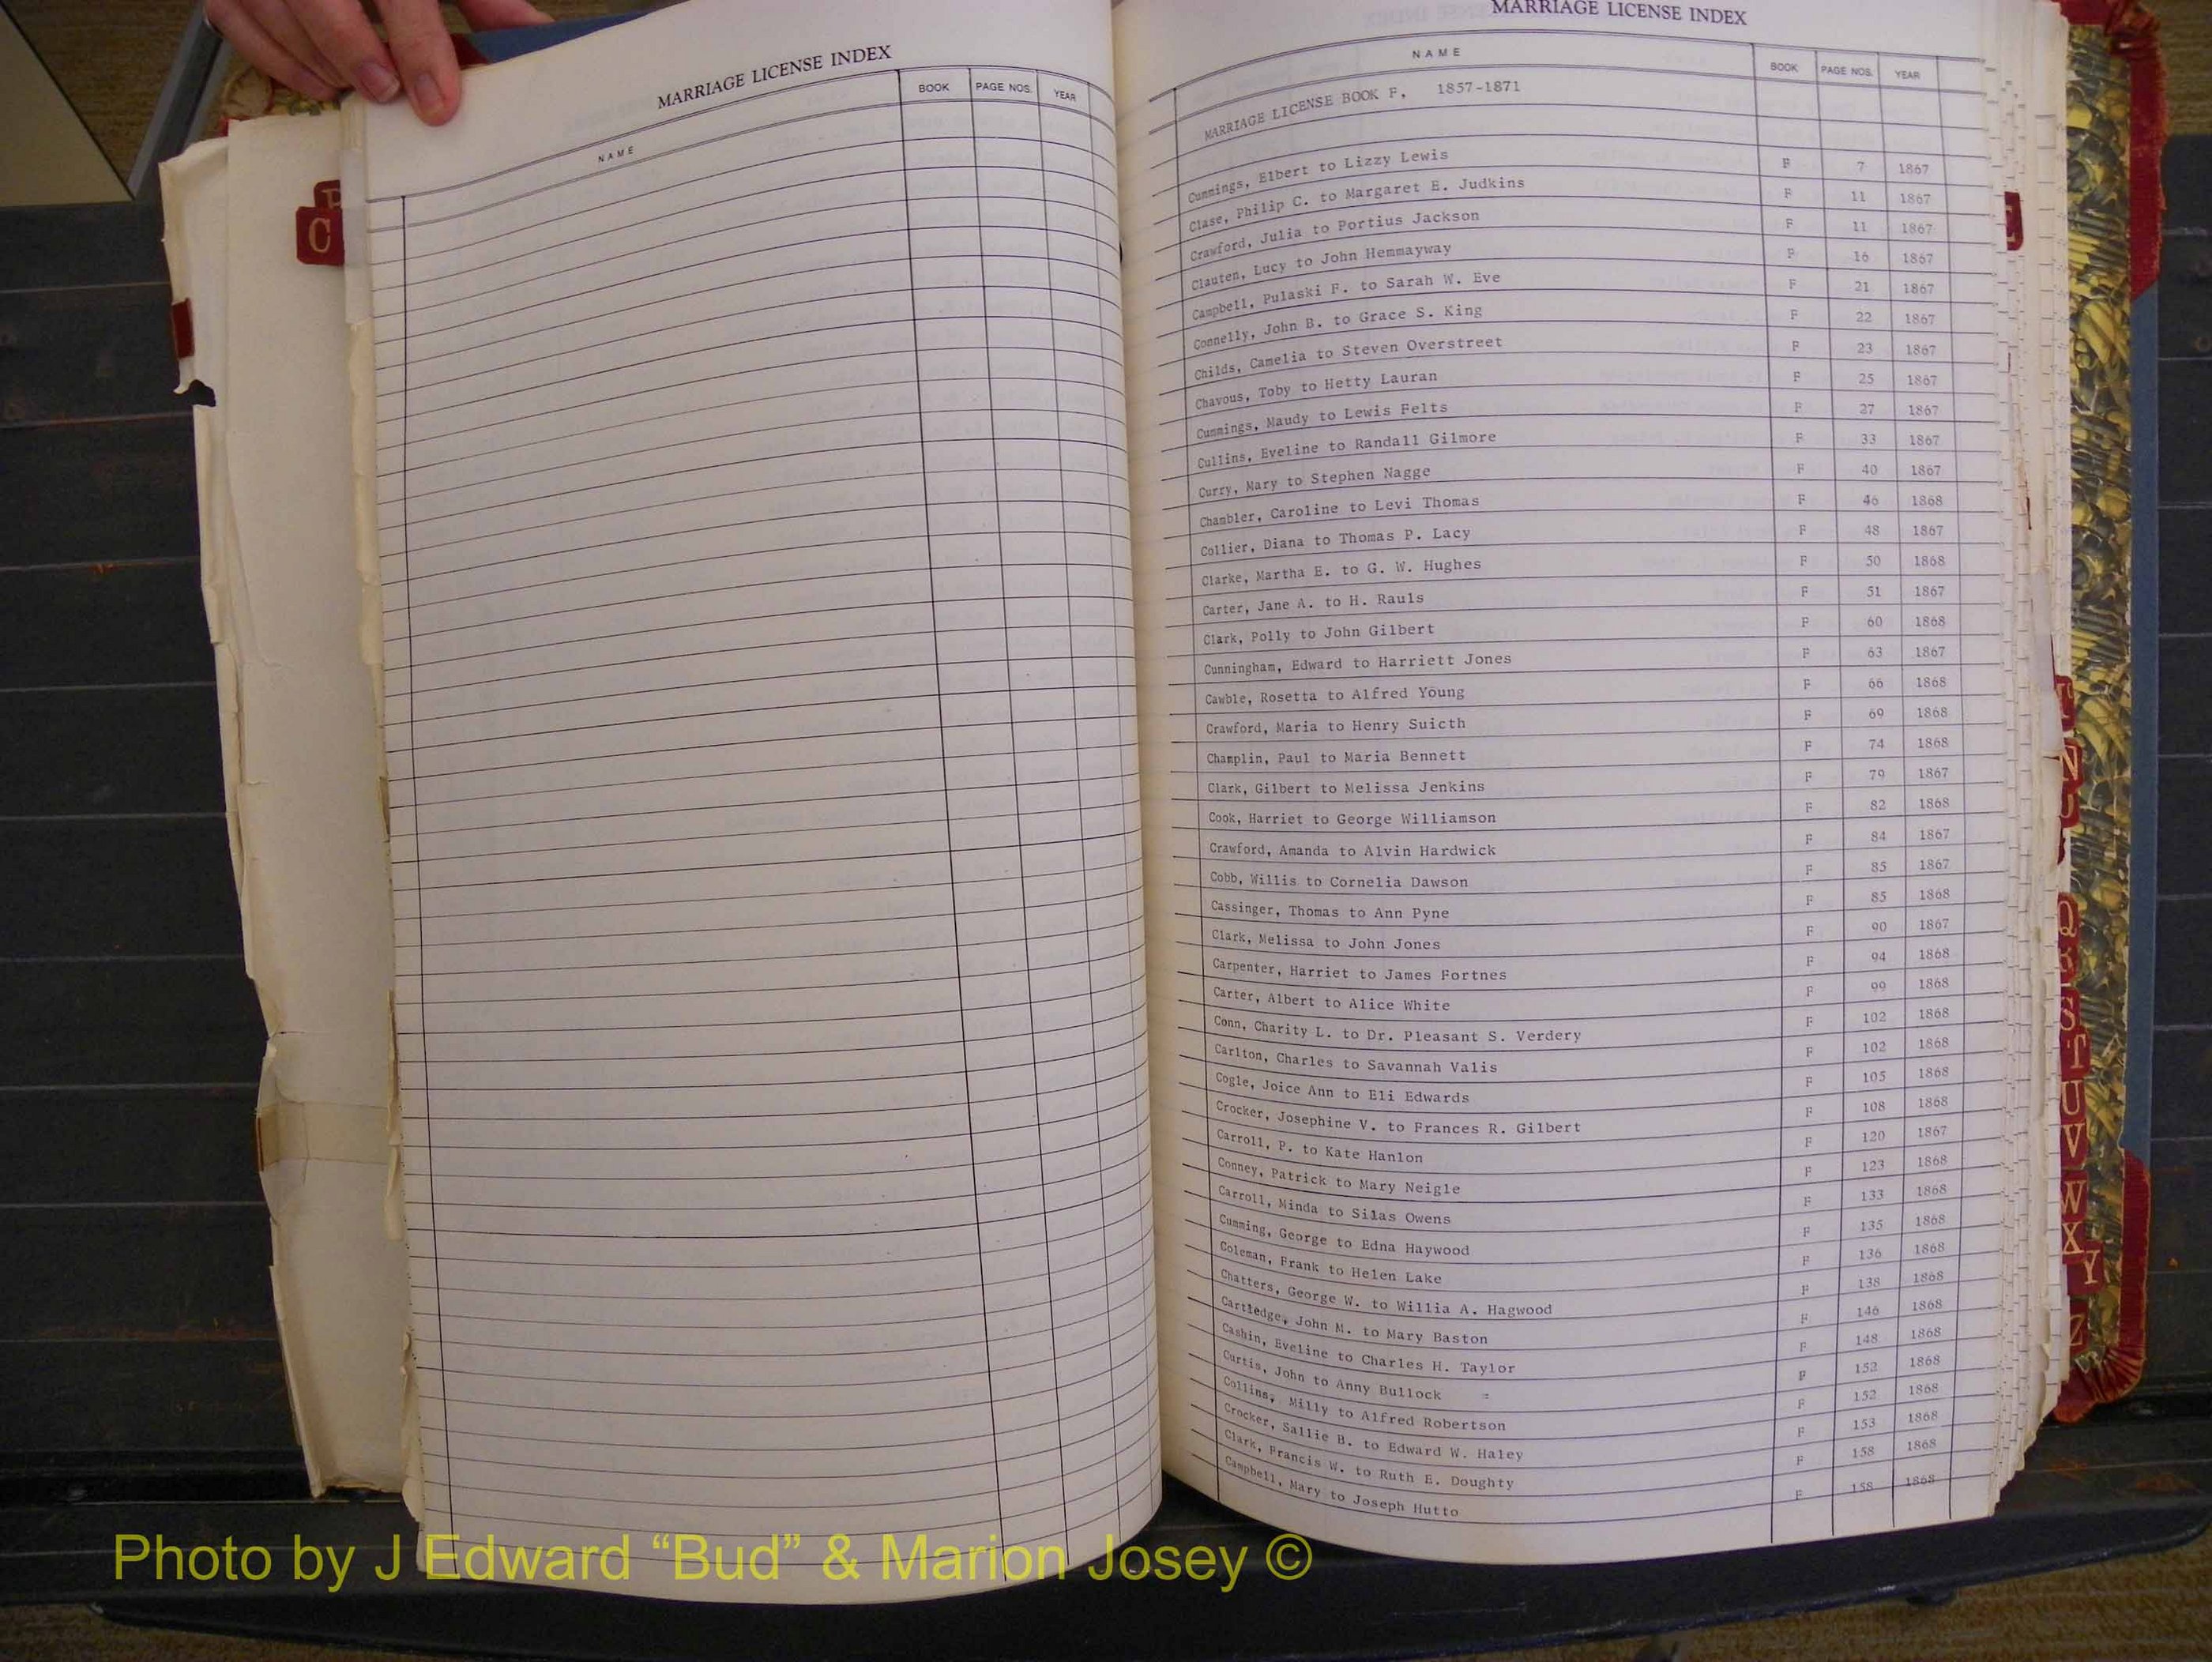 MARRIAGE LICENSE INDEX
NAME BOOK PAGE NOS. YEAR
C
MARRIAGE LICENSE INDEX
NAME BOOK PAGE NOS. YEAR
MARRIAGE LICENSE BOOK F, 1857-1871
Cummings, Elbert to Lizzy Lewis F 7 1867
Clase, Philip C. to Margaret E. Judkins F 11 1867
Crawford, Julia to Portius Jackson F 11 1867
Clauten, Lucy to John Hemmayway F 16 1867
Campbell, Pulaski F. to Sarah W. Eve F 21 1867
Connelly, John B. to Grace S. King F 22 1867
Childs, Camelia to Steven Overstreet F 23 1867
Chavous, Toby to Hetty Lauran F 25 1867
Cummings, Maudy to Lewis Felts F 27 1867
Cullins, Eveline to Randall Gilmore F 33 1867
Curry, Mary to Stephen Nagge F 40 1867
Chambler, Caroline to Levi Thomas F 46 1868
Collier, Diana to Thomas P. Lacy F 48 1867
Clarke, Martha E. to G. W. Hughes F 50 1868
Carter, Jane A. to H. Rauls F 51 1867
Clark, Polly to John Gilbert F 60 1868
Cunningham, Edward to Harriett Jones F 63 1867
Cawble, Rosetta to Alfred Young F 66 1868
Crawford, Maria to Henry Suicth F 69 1868
Champlin, Paul to Maria Bennett F 74 1868
Clark, Gilbert to Melissa Jenkins F 79 1867
Cook, Harriet to George Williamson F 82 1868
Crawford, Amanda to Alvin Hardwick F 84 1867
Cobb, Willis to Cornelia Dawson F 85 1867
Cassinger, Thomas to Ann Pyne F 85 1868
Clark, Melissa to John Jones F 90 1867
Carpenter, Harriet to James Fortnes F 94 1868
Carter, Albert to Alice White F 99 1868
Conn, Charity L. to Dr. Pleasant S. Verdery F 102 1868
Carlton, Charles to Savannah Valis F 102 1868
Cogle, Joice Ann to Eli Edwards F 105 1868
Crocker, Josephine V. to Frances R. Gilbert F 108 1868
Carroll, P. to Kate Hanlon F 120 1867
Conney, Patrick to Mary Neigle F 123 1868
Carroll, Minda to Silas Owens F 133 1868
Cumming, George to Edna Haywood F 135 1868
Coleman, Frank to Helen Lake F 136 1868
Chatters, George W. to Willia A. Hagwood F 138 1868
Cartledge, John M. to Mary Baston F 146 1868
Cashin, Eveline to Charles H. Taylor F 148 1868
Curtis, John to Anny Bullock = F 152 1868
Collins, Milly to Alfred Robertson F 152 1868
Crocker, Sallie B. to Edward W. Haley F 153 1868
Clark, Francis W. to Ruth E. Doughty F 158 1868
Campbell, Mary to Joseph Hutto F 158 1868
Q
R
S
T
U
V
W
X
Y
Z
Photo by J Edward “Bud” & Marion Josey ©